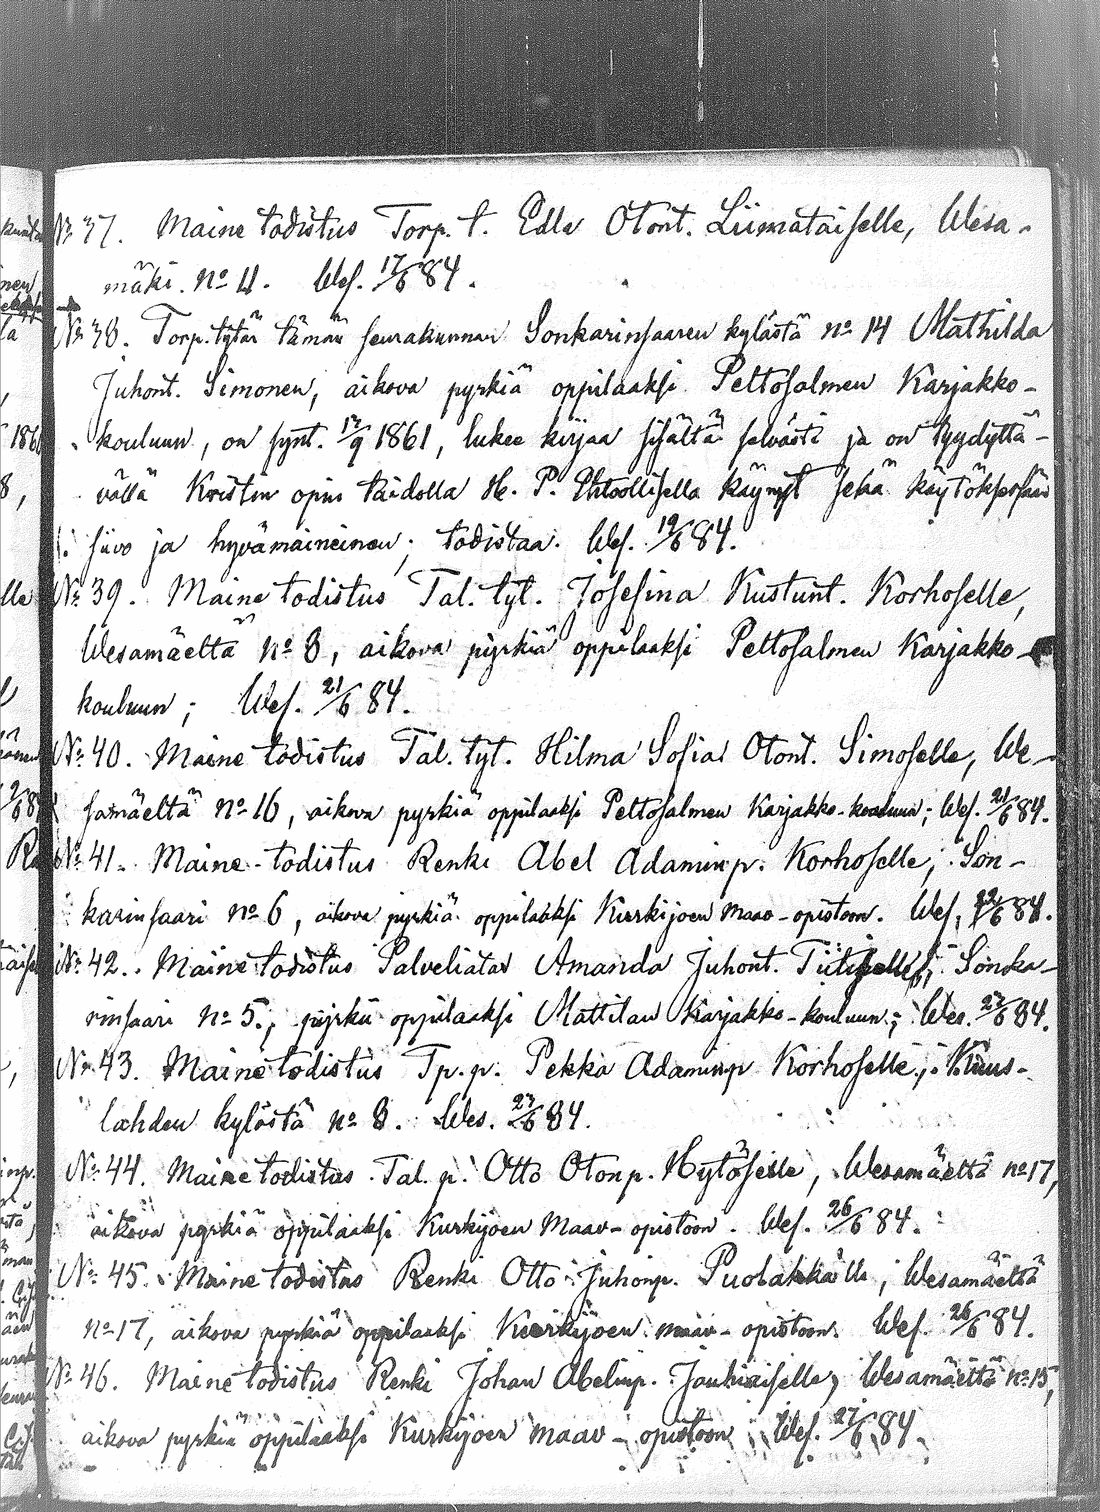 No 37. Maine todistus Torp. t. Edla Otont. Liimataiselle, Wesa-
mäki. no 4. Wes. 17/6 84.
No 38. Torp. tytär tämän seurakunnan Sonkarinsaaren kylästä no 14 Mathilda
Juhont. Simonen, aikova pyrkiä oppilaaksi Peltosalmen Karjakko-
kouluun, on synt. 17/9 1861, lukee kirjaa sisältä selvästi ja on tyydyttä-
vällä Kristin opin taidolla H. P. Ehtoollisella käynyt sekä käytöksessään
siivo ja hyvämaineinen; todistaa. Wes. 19/6 84.
No 39. Maine todistus Tal. tyt. Josefina Kustunt. Korhoselle,
Wesamäeltä no 8, aikova pyrkiä oppilaaksi Peltosalmen Karjakko-
kouluun; Wes. 21/6 84.
No 40. Maine todistus Tal. tyt. Hilma Sofia Otont. Simoselle, We-
samäeltä no 16, aikova pyrkiä oppilaaksi Peltosalmen Karjakko-kouluun; Wes. 21/6 84.
No 41. Maine-todistus Renki Abel Adaminp. Korhoselle, Son-
karinsaari no 6, aikova pyrkiä oppilaaksi Kurkijoen maav-opistoon. Wes. /6 84.
No 42. Maine todistus Palveliatar Amanda Juhont. Sonka-
rinsaari no 5., pyrkii oppilaaksi Mattilan Karjakko-kouluun; Wes. 23/6 84.
No 43. Maine todistus Tp. p. Pekka Adaminp Korhoselle; Kuus-
lahden kylästä no 8. Wes. 23/6 84.
No 44. Maine todistus Tal. p. Otto Otonp. Hytöselle, Wesamäeltä no 17,
aikova pyrkiä oppilaaksi Kurkijoen Maav-opistoon. Wes. 26/6 84.
No 45. Maine todistus Renki Otto Juhonp. Puolakkalle, Wesamäeltä
no 17, aikova pyrkiä oppilaaksi Kurkijoen maav-opistoon. Wes. 26/6 84.
No 46. Maine todistus Renki Johan Abelinp. Jauhiaiselle, Wesamäeltä no 15,
aikova pyrkiä oppilaaksi Kurkijoen maav-opistoon Wes. 27/6 84.